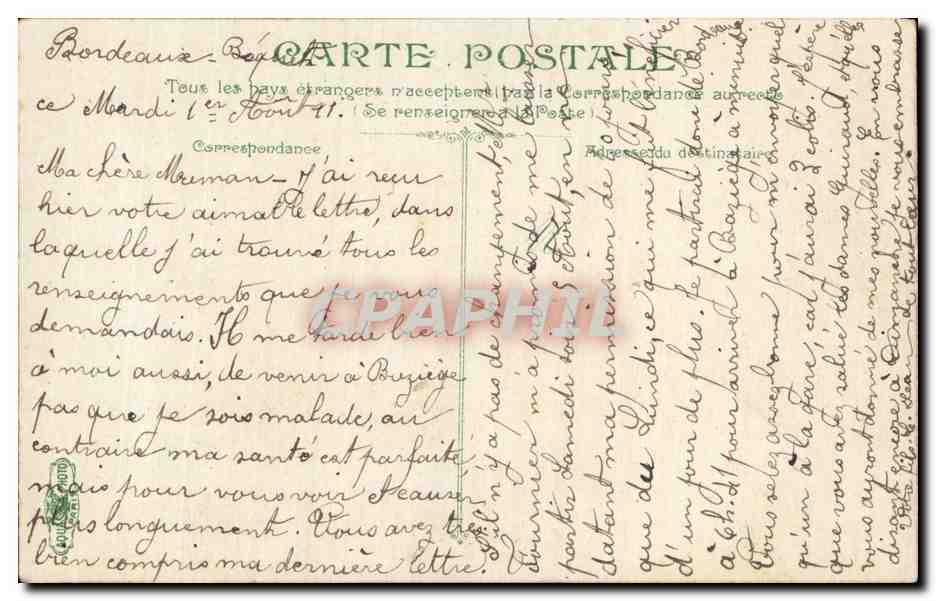 CARTE POSTALE
Tous les pays étrangers n'acceptent pas la Correspondance au recto
(Se renseigner à la Poste)
Correspondance
Adresse du destinataire
Bordeaux -
ce Mardi 1er Août 11.
Ma chère Meman - J'ai reçu
hier votre aimable lettre, dans
laquelle j'ai trouvé tous les
renseignements que je vous
demandais. Il me tarde bien
à moi aussi, de venir à Baziège
pas que je sois malade, au
contraire ma santé est parfaite,
mais pour vous voir et causer
plus longuement. Vous avez très
bien compris ma dernière lettre.
S'il n'y a pas de changement, et
Fournier m'a promis de me
partir Samedi soir 5 Août, en me
datant ma permission de 
que du Lundi, ce qui me fait bénéficier
d'un jour de plus. Je partirai donc de Bordeaux
à 6h d1 pour arriver à Baziège à minuit
Vous serez assez bonne pour m'envoyer quel
qu'un à la gare, car j'aurai 2 colis. J'espère
que vous avez salué les dames Guiraud et qu'elles
vous auront donné de mes nouvelles. En vous
disant encore à Dimanche je vous embrasse
Votre fils Jean de tout cœur.
CPAPHIL
PHOTO
PARIS